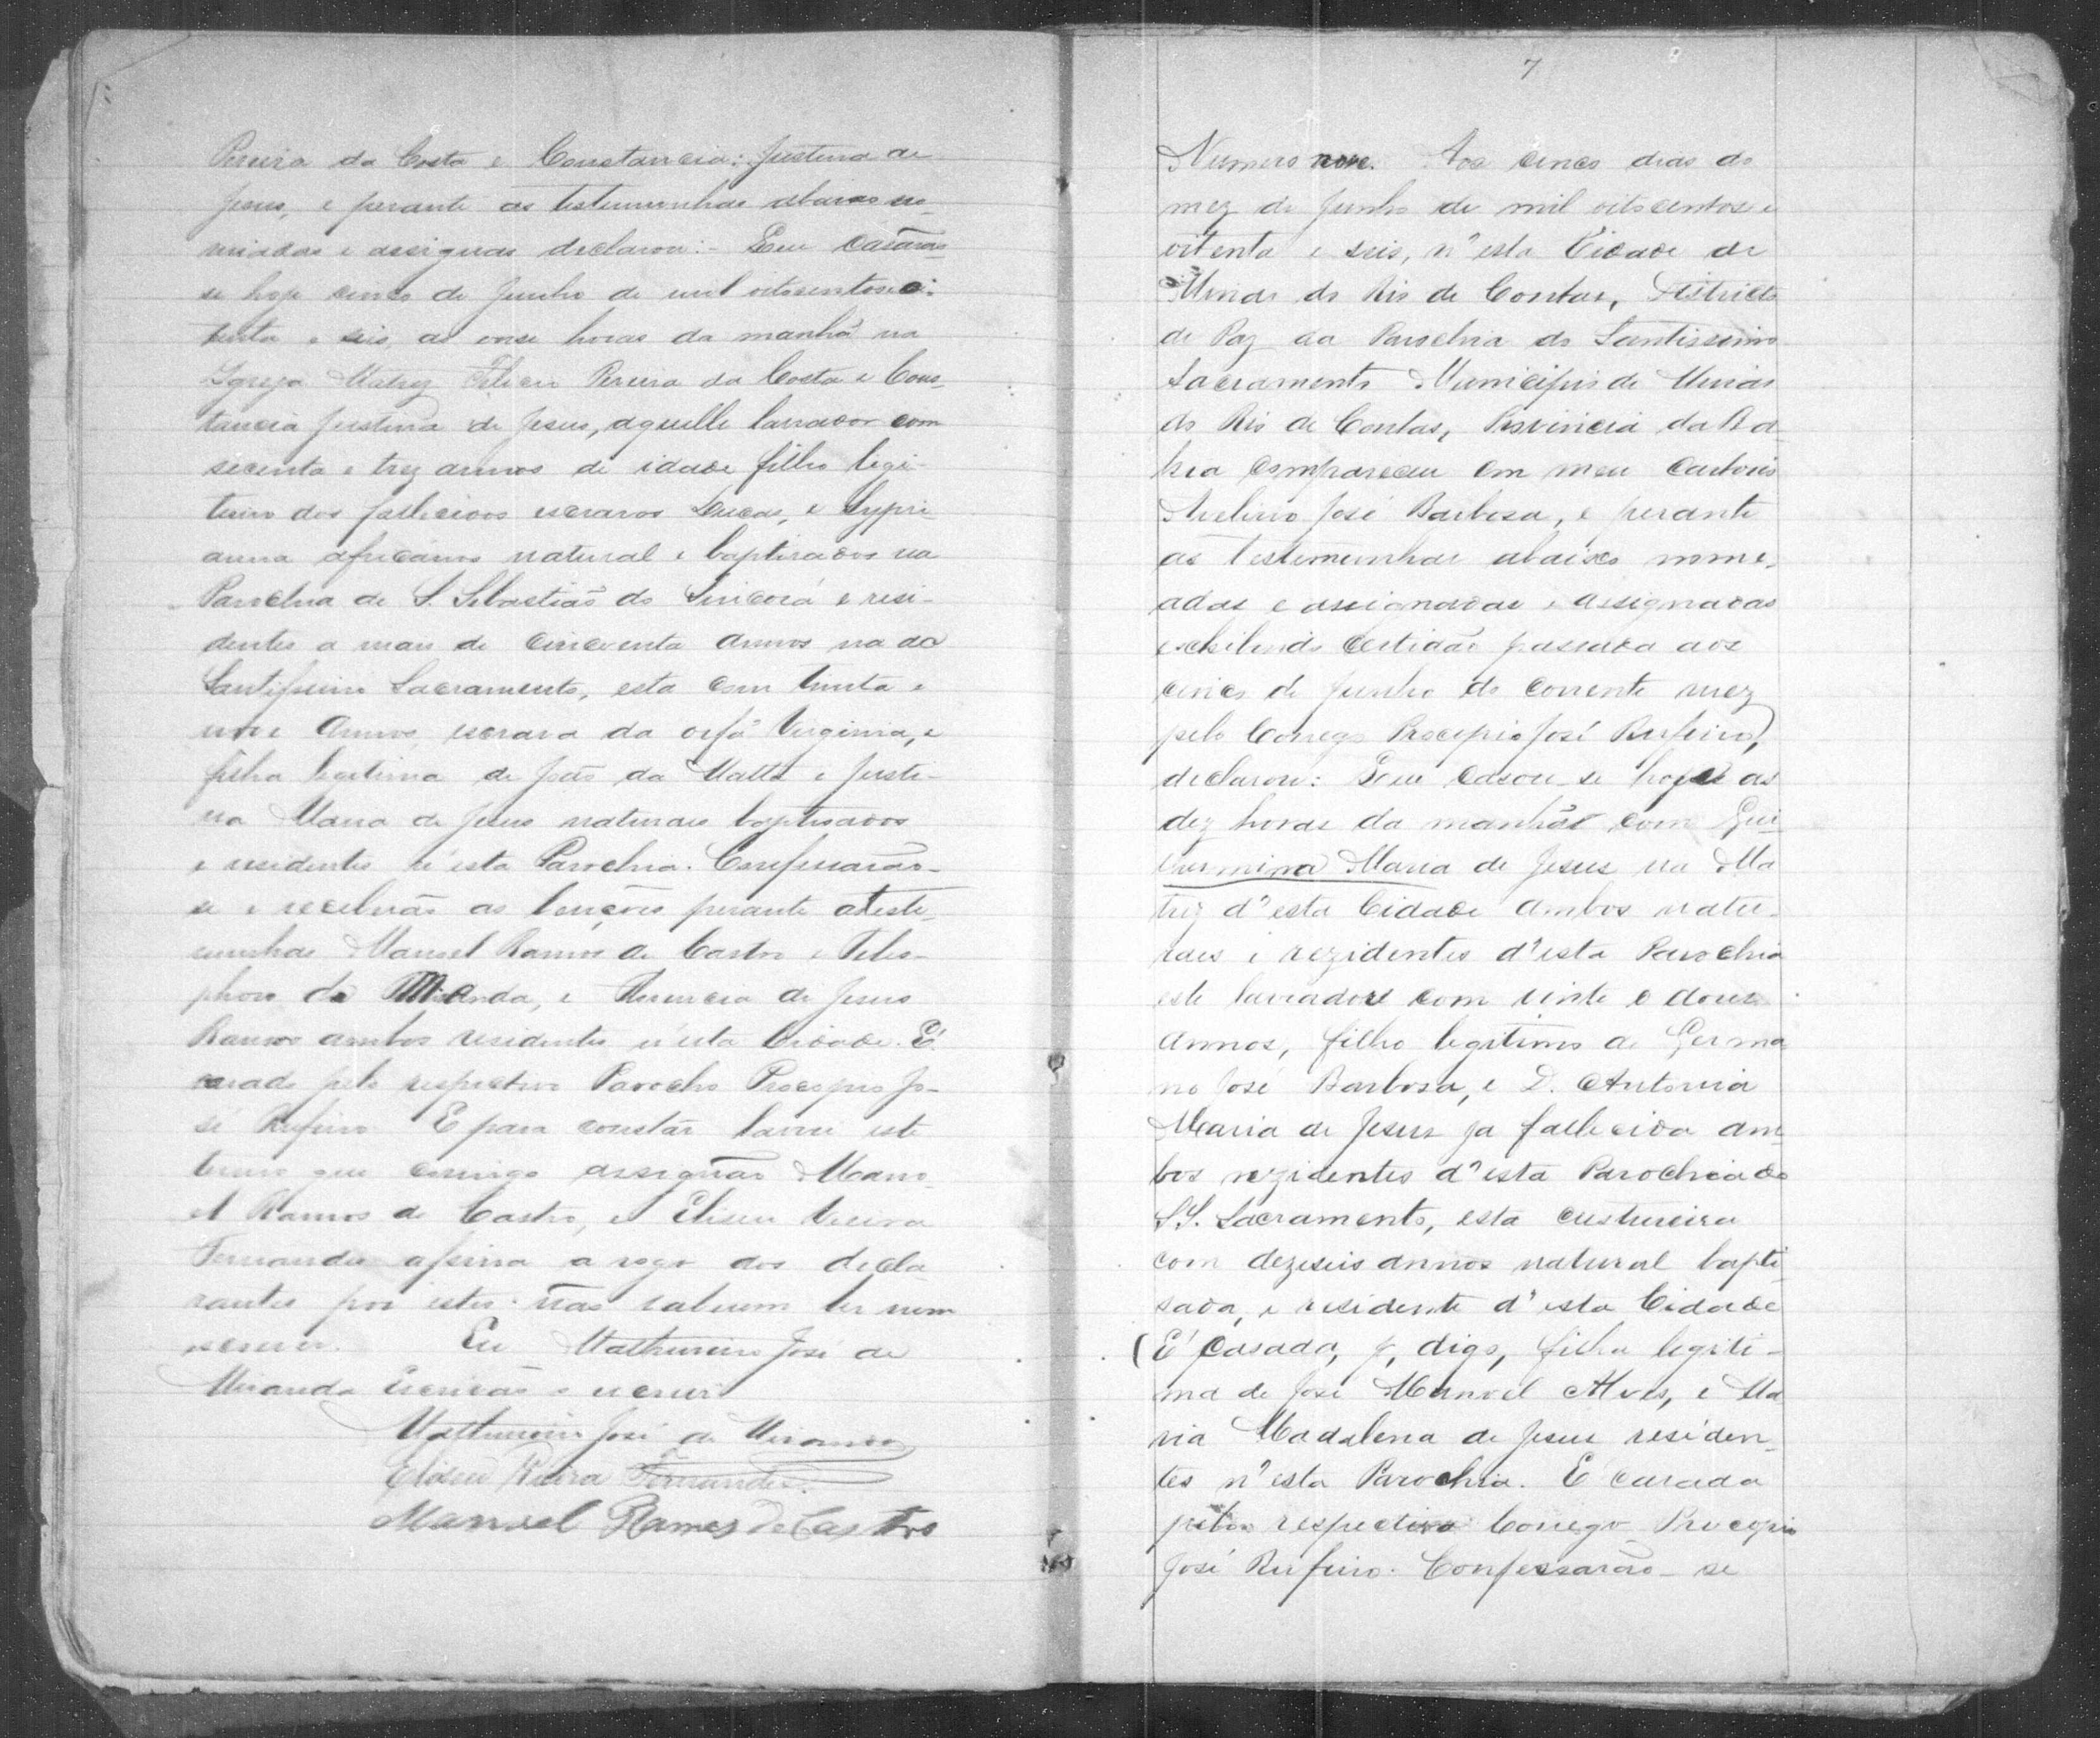 Pereira da Costa e Constancia: Justina de
Jesus, e perante as testemunhas abaixo no-
miadas e assignas declarou: Que casárão
se hoje cinco de Junho de mil oitosentos e oi:
tenta e seis, as onse horas da manhã na
Igreja Matriz Felicio Pereira da Costa e Cons-
tancia Justina de Jesus, aquelle lavrador com
secenta e trez annos de idade filho legi-
timo dos fallecidos escravos Lucas, e Sypri-
anna africanos natural e baptisados na
Parochia de S. Sebastião do Sincorá e resi-
dentes a mais de cincoenta annos na do
Santissimo Sacramento, esta com trinta e
nove annos, escrava da orfã Virginia, e
filha legitima de João da Matta e Justi-
na Maria de Jesus naturaes baptisados
e residentes n'esta Parochia. Confessarão-
se e receberão as bençoes perante as teste-
munhas Manoel Ramos de Castro e Teles-
phoro de Miranda, e de Jesus
Ramos ambos residentes n'esta Cidade. É
curado pelo respectivo Parocho Procopio Jo-
sé Rufino E para constár lavrei este
termo que comigo assignão Mano-
el Ramos de Castro, e Eliseu Vieira
Fernandes assina a rogo dos decla-
rantes por estes não saberem ler nem
escrever. Eu Mathurino José de
Miranda Escrivão o escrevi
Mathurino José de Miranda
Eliseu Vieira Fernandes.
Manoel Ramos de Castro
7
Numero nove. Aos cinco dias do
mez de Junho de mil oitocentos e
oitenta e seis, n'esta Cidade de
Minas do Rio de Contas, Districto
de Paz da Parochia do Santissimo
Sacramento Municipio de Minas
do Rio de Contas, Provincia da Ba-
hia compareceu em meu Cartorio
Avelino José Barbosa, e perante
as testemunhas abaixo nome-
adas e assignadas e assignadas
exhibindo Certidão passada aos
cinco de Junho do corrente mez
pelo Conego Procopio José Rufino,
declarou: Que casou-se hoje as
dez horas da manhã com Gui-
lhermina Maria de Jesus na Ma
triz d'esta Cidade ambos natu-
raes e rezidentes d'esta Parochia
este lavrador com vinte e dous
annos, filho legitimo de Germa
no José Barbosa, e D. Antonia
Maria de Jesus ja fallecida am
bos rezidentes d'esta Parochia do
S.S. Sacramento, esta custureira
com dezeseis annos natural bapti-
sada, e residente d'esta Cidade
(É casada, f, digo, filha legiti-
ma de José Manoel Alves, e Ma
ria Madalena de Jesus residen-
tes n'esta Parochia. É curada
pelo respectivo Conego Procopio
José Rufino. Confessarão-se